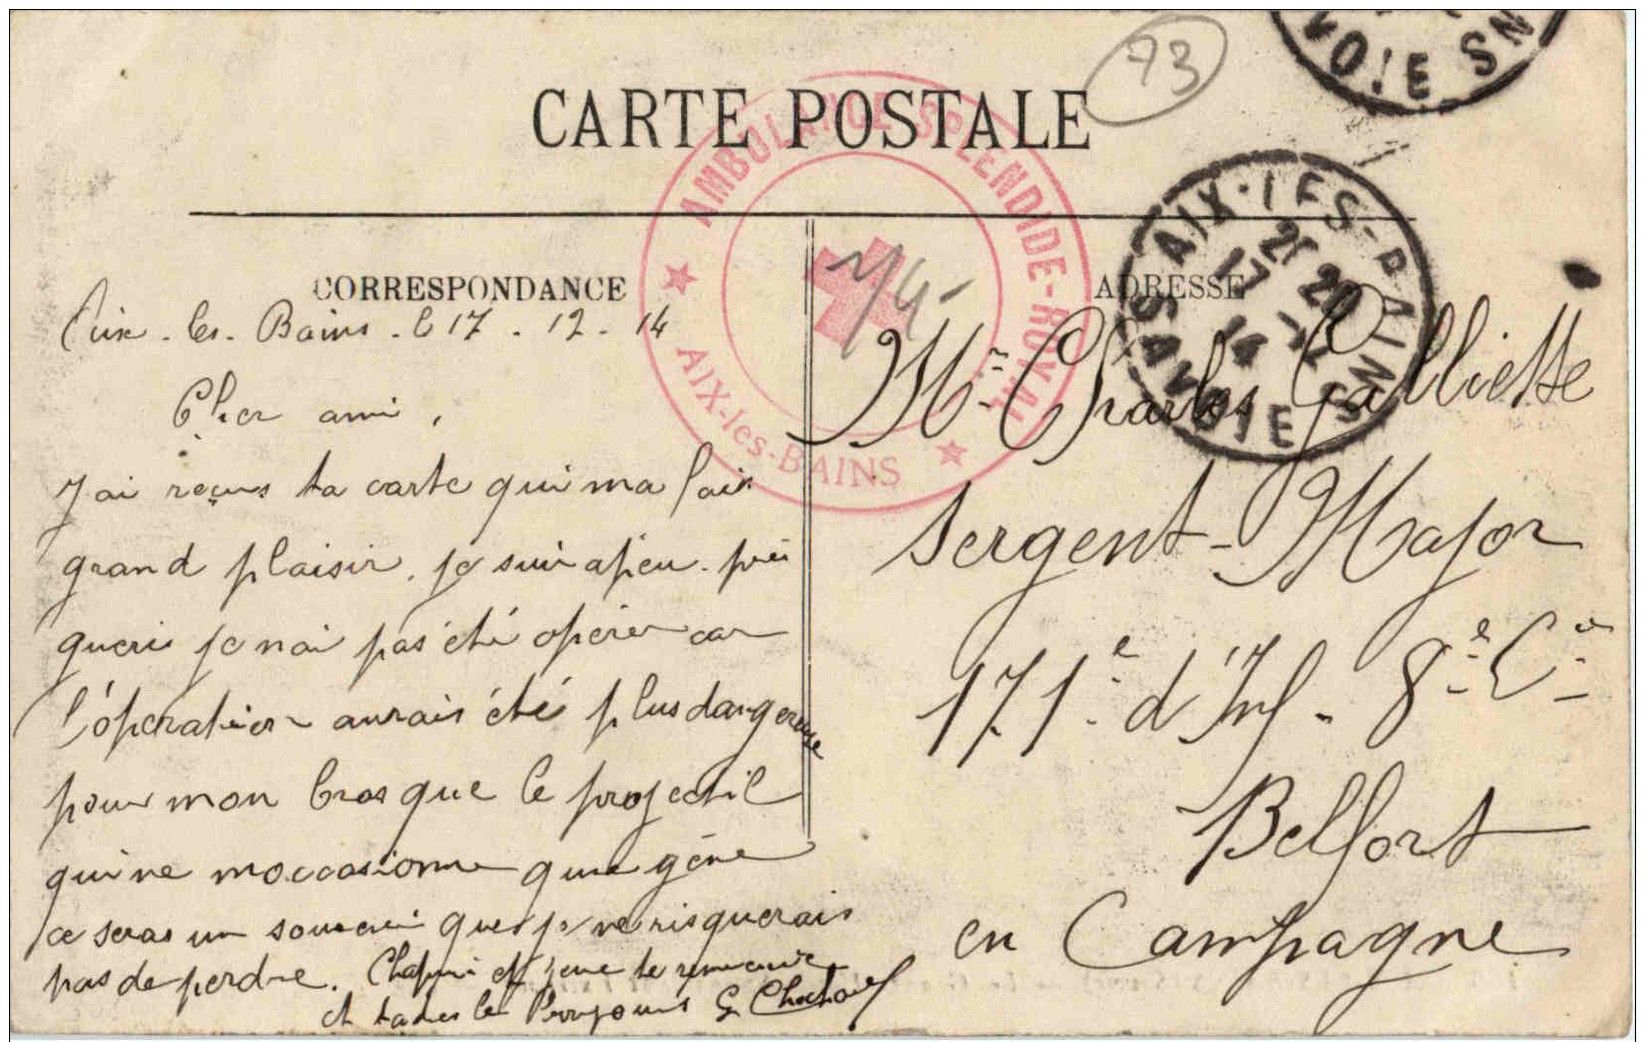 73
CARTE POSTALE
VOIE SN
AMBULANCE SPLENDIDE-ROYAL
AIX-les-BAINS
AIX-LES-BAINS
SAVOIE
17 - 12
14
CORRESPONDANCE
Aix - les - Bains - le 17 - 12 - 14
Cher ami,
J'ai reçus ta carte qui ma fais
grand plaisir, je suis a peu - près
gueris je nai pas été opérer car
l'óperation aurais été plus dangereuse
pour mon bras que le projectil
qui ne moccasionne qune gêne
ce seras un souvenir que je ne risquerais
pas de perdre.
te remercie
et
ADRESSE
Mr Charles Galliette
Sergent-Major
171e d'Inf - 8e Cie
Belfort
en Campagne